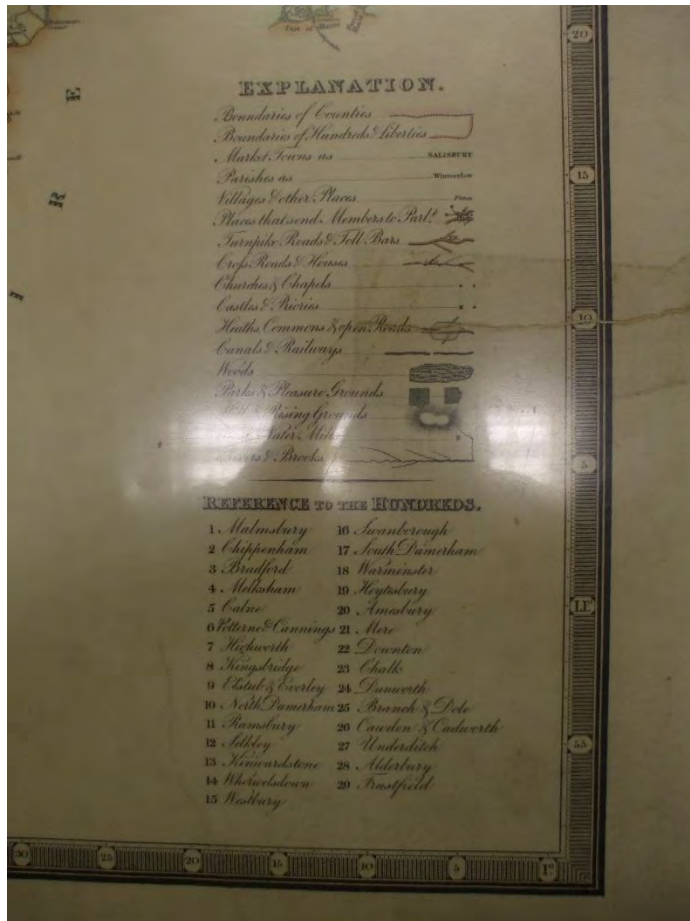 20
EXPLANATION.
Boundaries of Counties
Boundaries of Hundreds & Liberties
Market Towns as SALISBURY
Parishes as Winterslow
Villages & other Places
Places that send Members to Parl.t
Turnpike Roads & Toll Bars
Cross Roads & Houses
Churches & Chapels
Castles & Priories
Heaths, Commons & open Roads
Canals & Railways
Woods
Parks & Pleasure Grounds
Rising Grounds
Water Mills
Rivers & Brooks
15
10
5
E
R
I
REFERENCE TO THE HUNDREDS.
1 Malmsbury
2 Chippenham
3 Bradford
4 Melksham
5 Calne
6 Potterne & Cannings
7 Highworth
8 Kingsbridge
9 Elstub & Everley
10 North Damerham
11 Ramsbury
12 Selkley
13 Kinwardstone
14 Whorwelsdown
15 Westbury
16 Swanborough
17 South Damerham
18 Warminster
19 Heytesbury
20 Amesbury
21 Mere
22 Downton
23 Chalk
24 Dunworth
25 Branch & Dole
26 Cawden & Cadworth
27 Underditch
28 Alderbury
29 Frustfield
LI°
55
30 25 20 15 10 5 1°